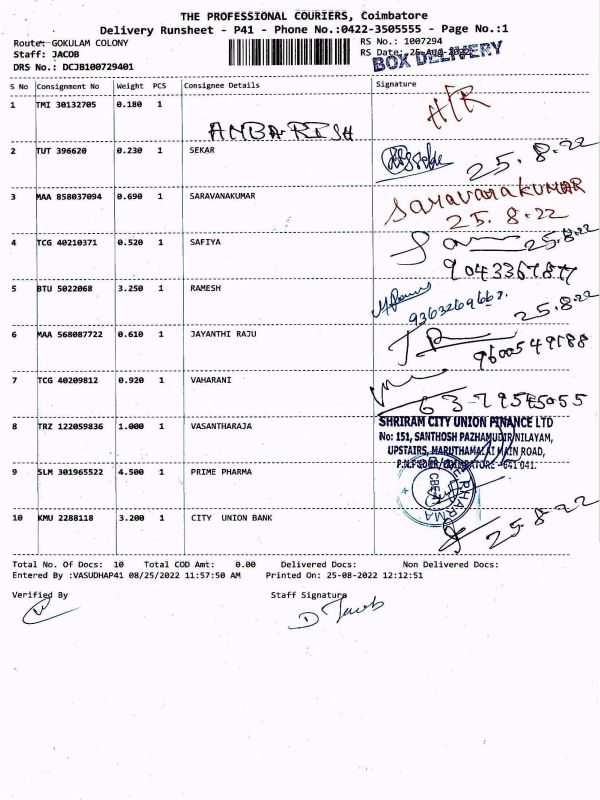 THE PROFESSIONAL COURIERS, Coimbatore
Delivery Runsheet - P41 - Phone No.:0422-3505555 - Page No.:1
Route: GOKULAM COLONY
RS No.: 1007294
Staff: JACOB
RS Date: 25-Aug-2022
BOX DELIVERY
DRS No.: DCJB100729401
S No Consignment No Weight PCS Consignee Details Signature
1 TMI 30132705 0.180 1 ANBARISH H/R
2 TUT 396620 0.230 1 SEKAR 25.8.22
3 MAA 858037094 0.690 1 SARAVANAKUMAR SARAVANAKUMAR
25.8.22
4 TCG 40210371 0.520 1 SAFIYA 25.8.22
5 BTU 5022068 3.250 1 RAMESH
25.8.22
6 MAA 568087722 0.610 1 JAYANTHI RAJU
9600549188
7 TCG 40209812 0.920 1 VAHARANI
8 TRZ 122059836 1.000 1 VASANTHARAJA SHRIRAM CITY UNION FINANCE LTD
No: 151, SANTHOSH PAZHAMUDIR NILAYAM,
UPSTAIRS, MARUTHAMALAI MAIN ROAD,
COIMBATORE - 641 041.
9 SLM 301965522 4.500 1 PRIME PHARMA
PRIME PHARMA
CBE
10 KMU 2288118 3.200 1 CITY UNION BANK 25-8-22
Total No. Of Docs: 10 Total COD Amt: 0.00 Delivered Docs: Non Delivered Docs:
Entered By :VASUDHAP41 08/25/2022 11:57:50 AM Printed On: 25-08-2022 12:12:51
Verified By Staff Signature
D Jacob